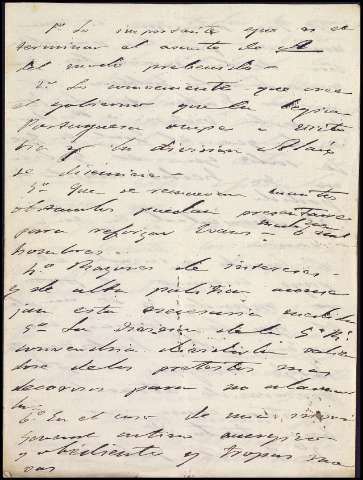 1º Lo importante que es el
terminar el asunto de A
del modo prebenido.
2º Lo conveniente que cree
el gobierno que la Legion
Portuguesa ocupe a Vito
ria y la division Alaix
se disemine.
3º Que se remuevan cuantos
obstaculos puedan presentarse
para reforzar Evans 6 mil
hombres.
4º Razones de interes
y de alta politica aconse
jan esta necesaria medida
5º La division de la
convendria disolverla valien
dose de los pretestos mas
decorosos para no alarmar
la.
6º En el caso de
General activo energico
y obediente y tropas